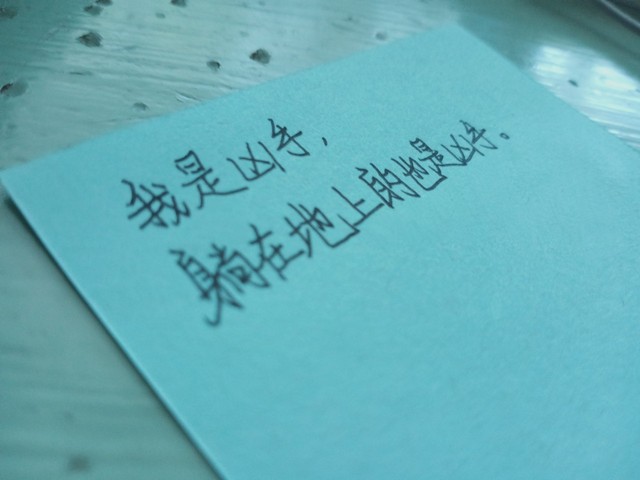 我是凶手，
躺在地上的也是凶手。